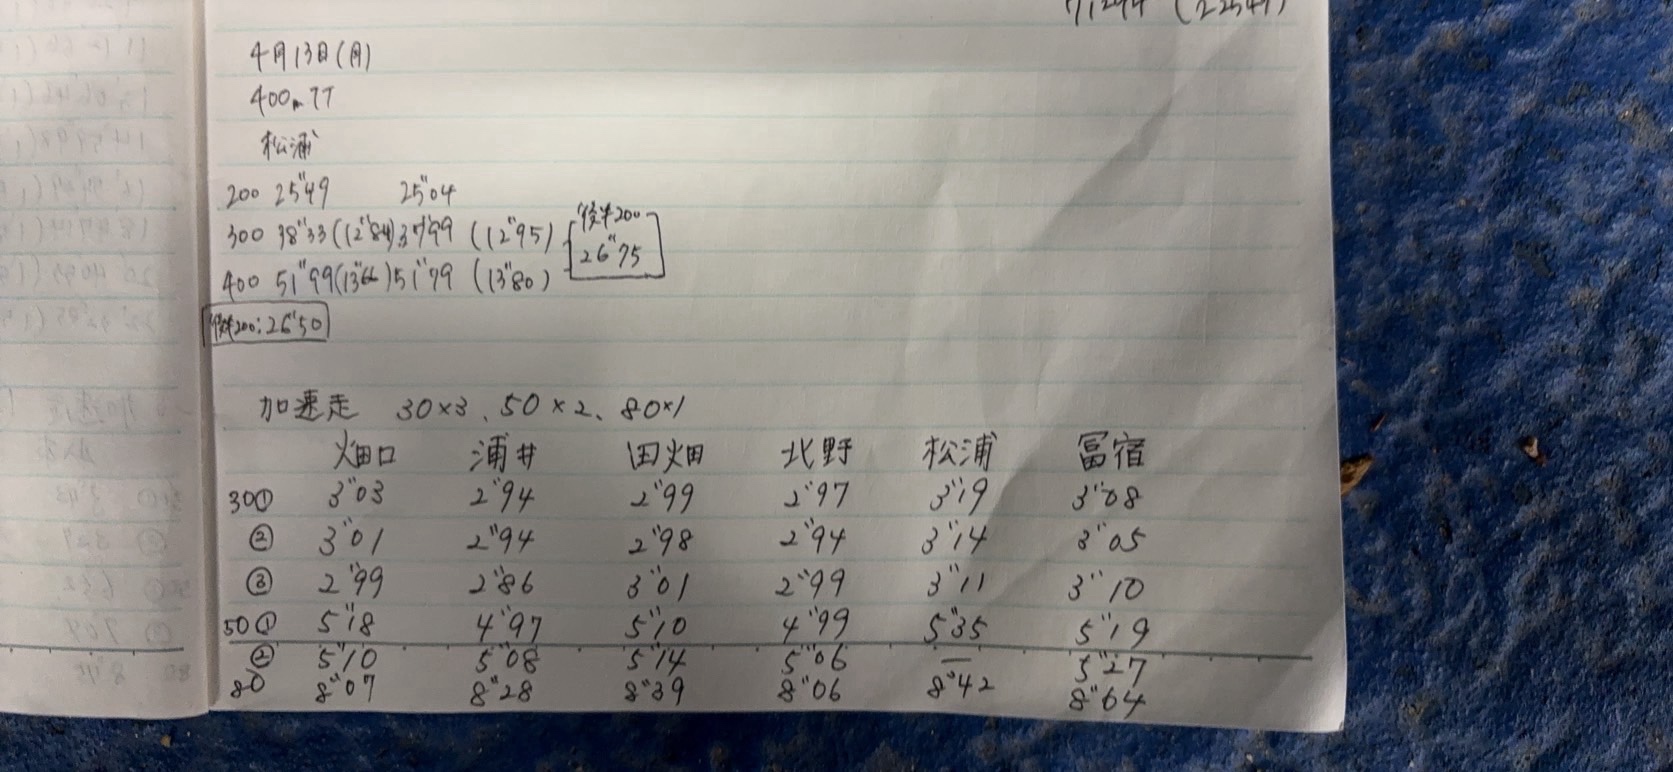 71"294 (22"549)
4月13日(月)
400m TT
松浦
200 25"49 25"04
300 38"33(12"84)37"99 (12"95) 後半200
400 51"99(13"66)51"79 (13"80) 26"75
後半200:26"50
加速走 30×3、50×2、80×1
畑口 浦井 田畑 北野 松浦 冨宿
30① 3"03 2"94 2"99 2"97 3"19 3"08
② 3"01 2"94 2"98 2"94 3"14 3"05
③ 2"99 2"86 3"01 2"99 3"11 3"10
50① 5"18 4"97 5"10 4"99 5"35 5"19
② 5"10 5"08 5"14 5"06 — 5"27
80 8"07 8"28 8"39 8"06 8"42 8"64